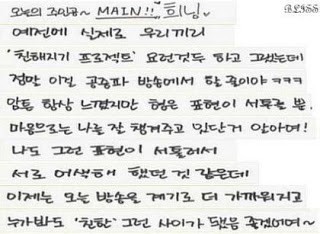 오늘의 주인공~ MAIN!! 희님
BLISS
예전에 실제로 우리끼리
'친해지기 프로젝트' 요런것두 하고 그랬는데
정말 이걸 공중파 방송에서 할 줄이야 ㅋㅋㅋ
암튼 항상 느꼈지만 형은 표현이 서툴뿐.
마음으로는 나를 잘 챙겨주고 있단거 알아여!
나도 그런 표현이 서툴러서
서로 어색해 했던 것 같은데
이제는 오늘 방송을 계기로 더 가까워지고
누가봐도 '친한' 그런 사이가 됐음 좋겠어여~